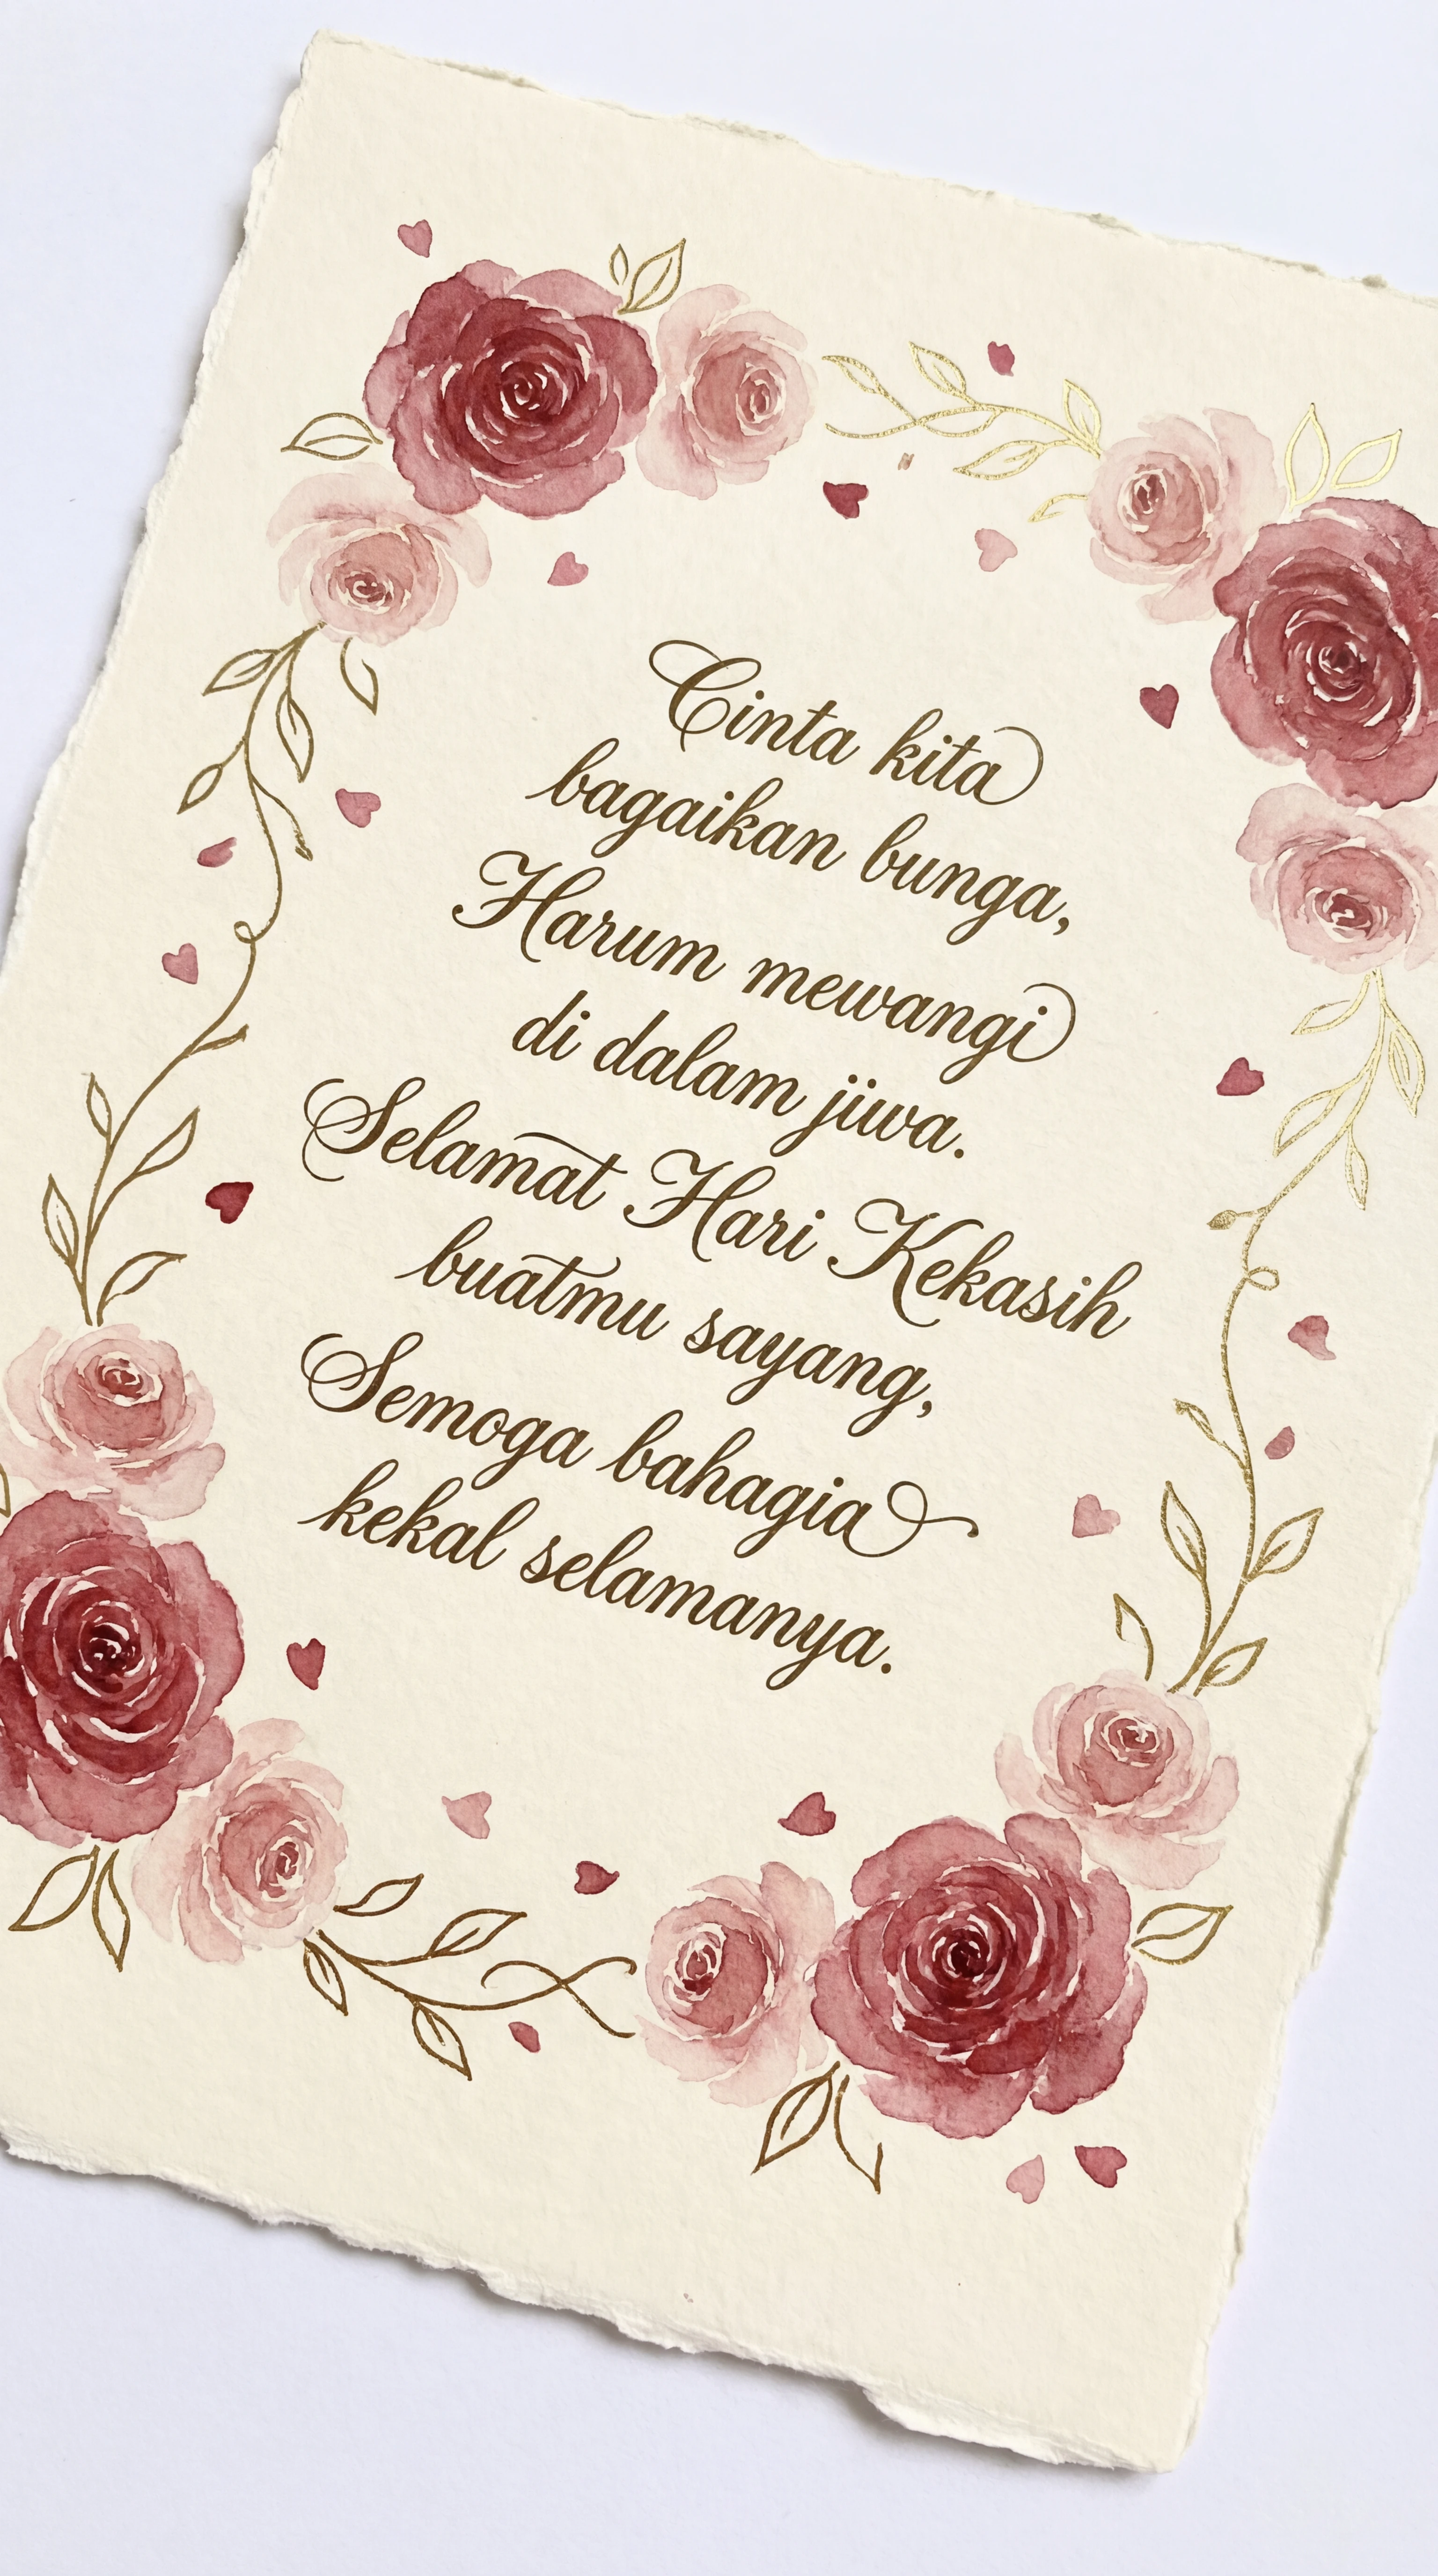 Cinta kita
bagaikan bunga,
Harum mewangi
di dalam jiwa.
Selamat Hari Kekasih
buatmu sayang,
Semoga bahagia
kekal selamanya.